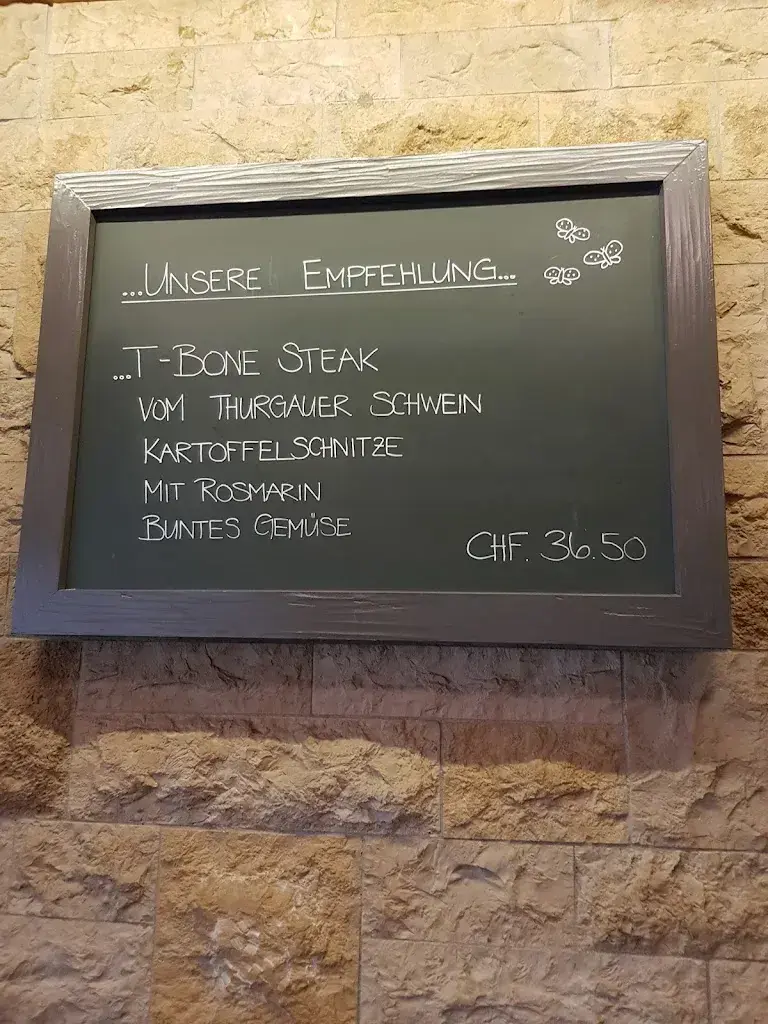 ...UNSERE EMPFEHLUNG...
...T-BONE STEAK
VOM THURGAUER SCHWEIN
KARTOFFELSCHNITZE
MIT ROSMARIN
BUNTES GEMÜSE
CHF. 36.50